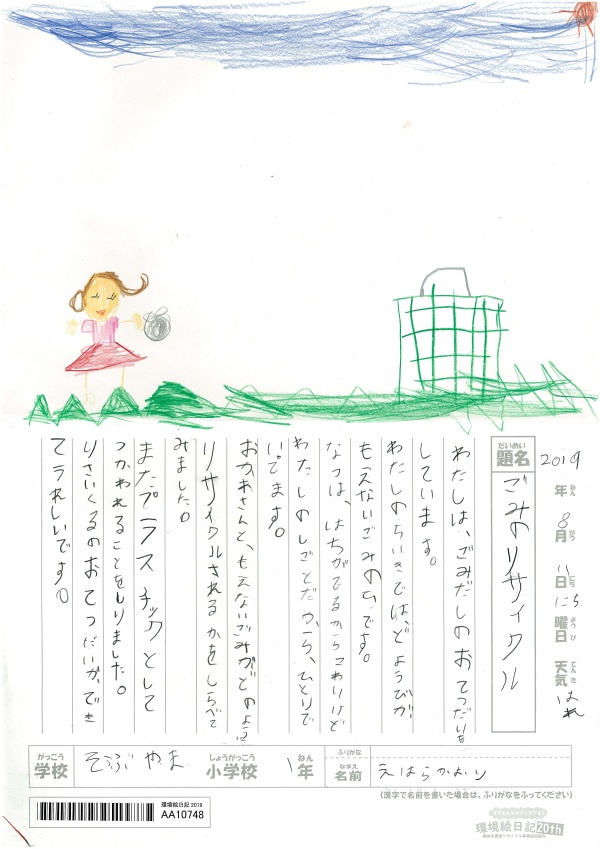 2019年ねん8月がつ11日にちにち曜日ようび天気てんきはれ
題名だいめい ごみのリサイクル
わたしは、ごみだしのおてつだいを
しています。
わたしのちいきでは、どようびが
もえないごみのひです。
なつは、はちがでるからこわいけど
わたしのしごとだから、ひとりで
いてます。
おかあさんと、もえないごみがどのように
リサイクルされるかをしらべて
みました。
またプラスチックとして
つかわれることをしりました。
りさいくるのおてつだいが、でき
てうれしいです。
学校がっこう そぶやま 小学校しょうがっこう 1年ねん
ふりがな
名前なまえ えはらかおり
(漢字で名前を書いた場合は、ふりがなをふってください)
環境絵日記 2019
AA10748
環境絵日記20th